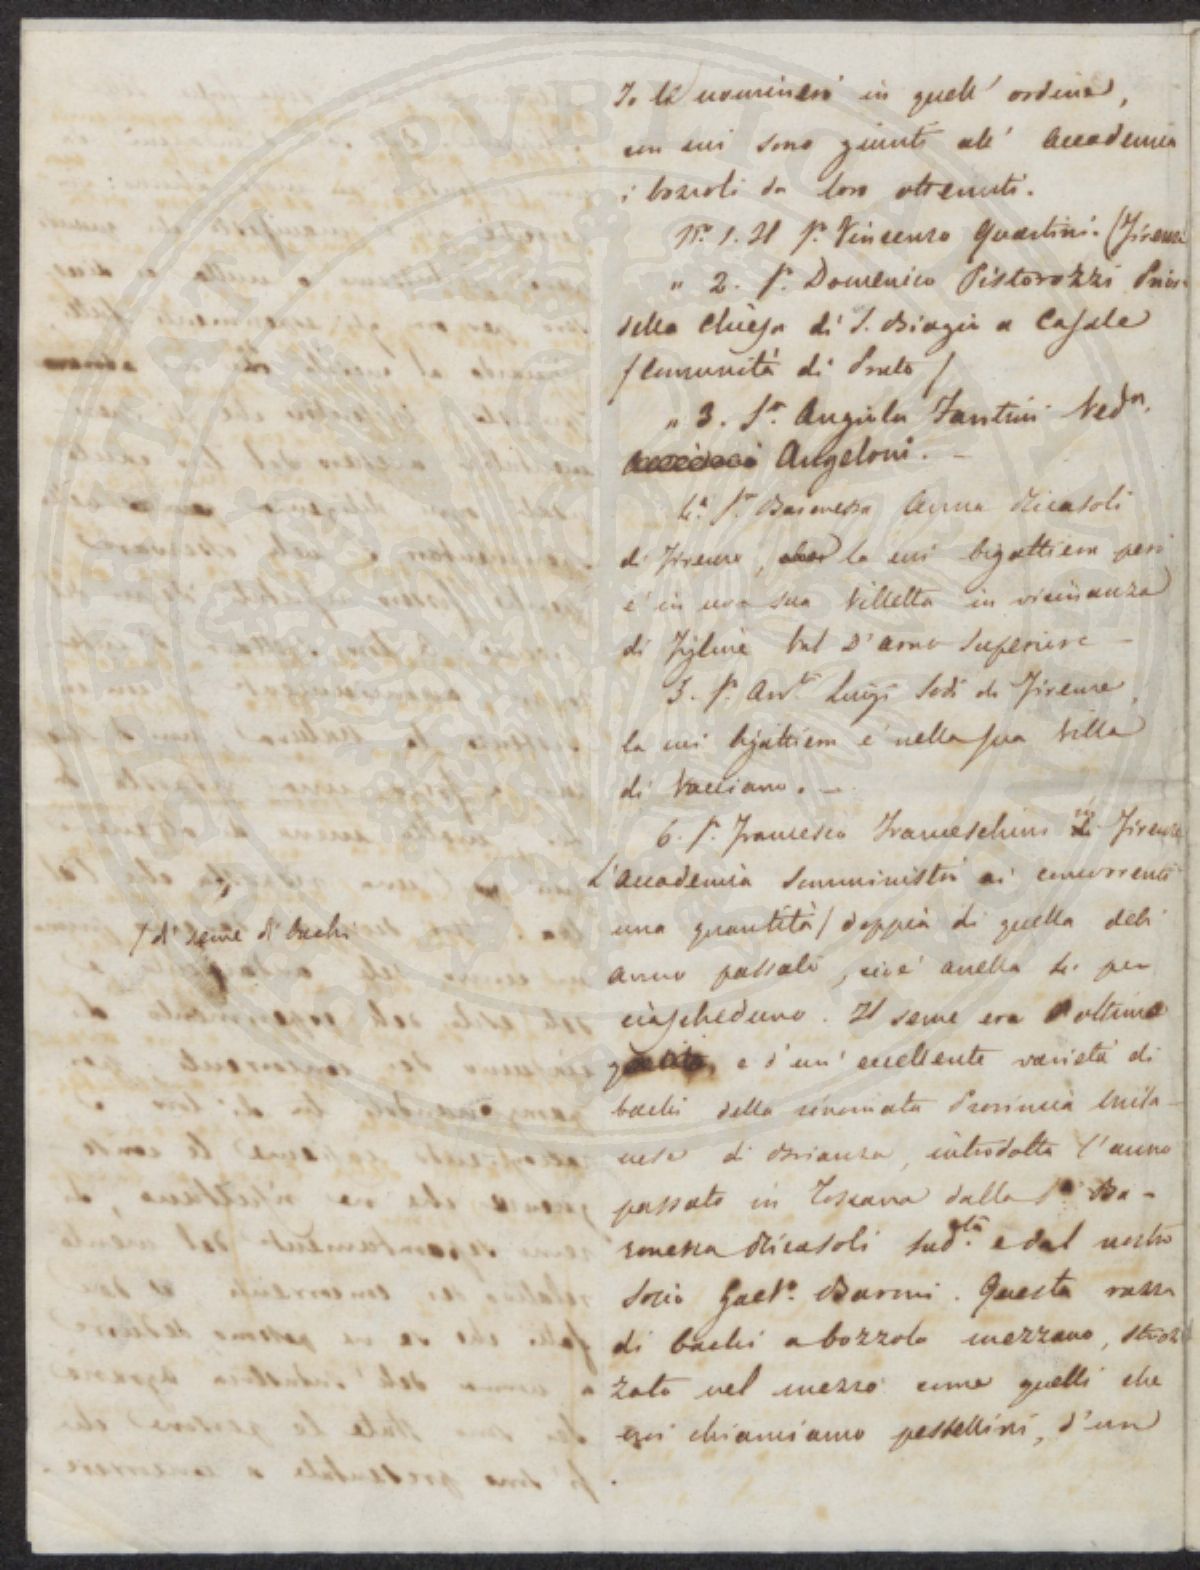 Io li nominerò in quell' ordine,
con cui sono giunti all' Accademia
i bozzoli da loro ottenuti.
N.° 1. Il S.r Vincenzo Guastini. (Firenze
" 2. S.r Domenico Pistorozzi Prior
della Chiesa di S. Biagio a Casale
/Comunità di Prato/
" 3. S.ra Angiola Fantini Ved.va
Angeloni. —
4.a S.ra Baronessa Anna Ricasoli
di Firenze, la cui bigattiera però
è in una sua Villetta in vicinanza
di Figline Val D'arno Superiore —
5. S.r Avv.to Luigi Sodi di Firenze,
la cui bigattiera è nella sua Villa
di Vacciano. —
6. S.r Francesco Franceschini in Firenze
L'accademia somministrò ai concorrenti
una quantità / doppia di quella dell
/ di seme di bachi
anno passato, cioè anella sei per
ciascheduno. Il seme era d'ottima
qualità, e d'un' eccellente varietà di
bachi della rinomata Provincia Mila-
nese di Brianza, introdotta l'anno
passato in Toscana dalla S.ra Ba-
ronessa Ricasoli Sud.ta e dal nostro
Socio Gaet.o Baroni. Questa razza
di bachi a bozzolo mezzano, stroz
zato nel mezzo come quelli che
noi chiamiamo pestellini, d'un